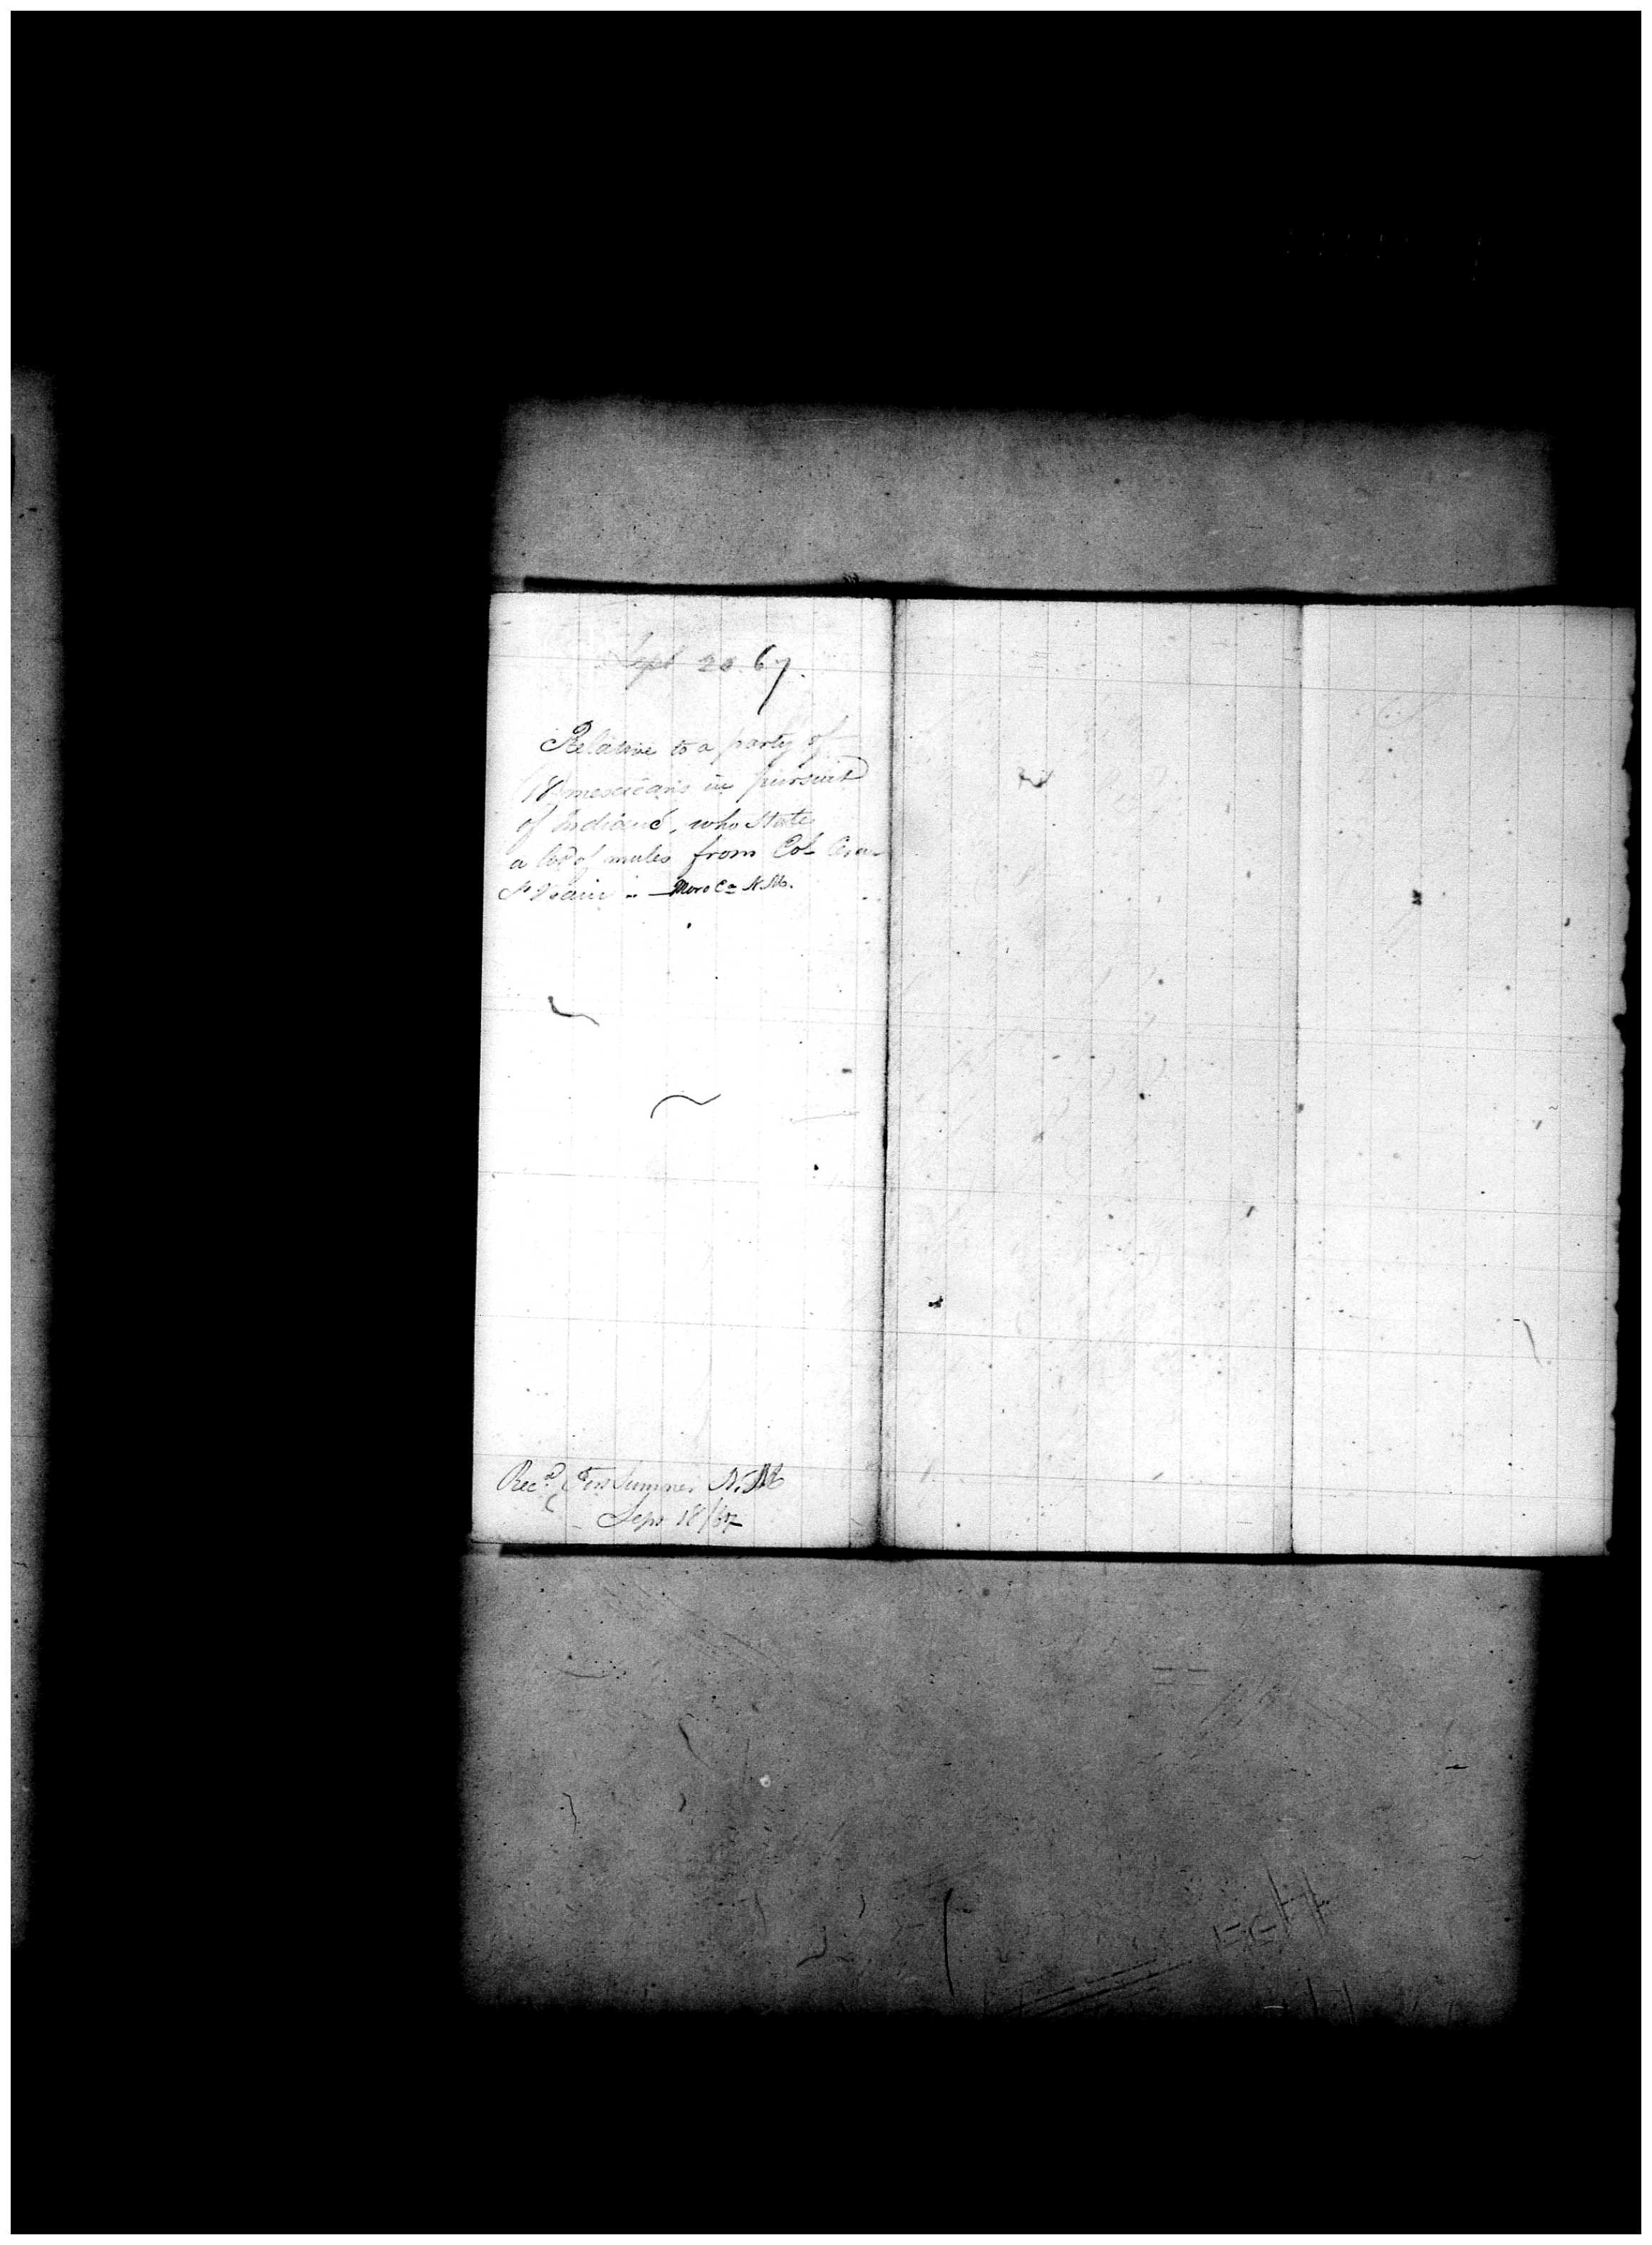 Sept 20 67.
Relative to a party of
18 mexicans in pursuit
of Indians, who Stole
a lot of mules from Col. Ceran
St Vrain - Mora Co N.M.
Recd Fort Sumner N.M.
Sept 18/67